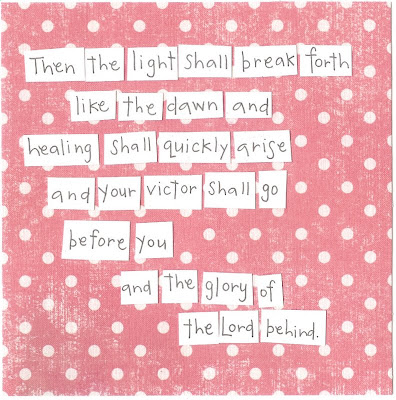 Then the light shall break forth
like the dawn and
healing shall quickly arise
and your victor shall go
before you
and the glory of
the Lord behind.